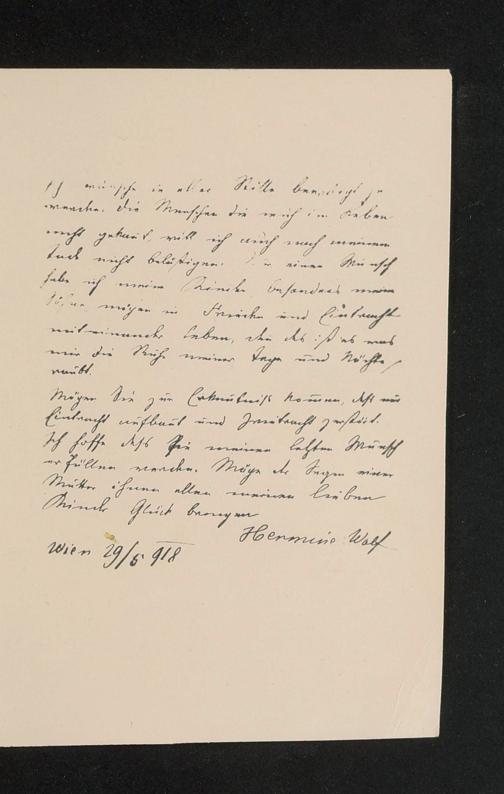 Ich wünsche in aller Stille beerdigt zu
werden. Die Menschen die mich im Leben
nicht gekant, will ich auch nach meinem
Tode nicht belästigen. einen Wunsch
habe ich meine Kinder besonders meine
Söhne mögen in Frieden und Eintracht
miteinander leben, den das ist es was
mir die Ruhe meiner Tage und Nächte
raubt.
Mögen Sie zur Erkentniss kommen, dass nur
Eintracht aufbaut und Zwietracht zerstört.
Ich hoffe dass Sie meinen letzten Wunsch
erfüllen werden. Möge der Segen einer
Mutter ihnen allen meinen lieben
Kinder Glück bringen
Hermine Wolf
Wien 29/5 918